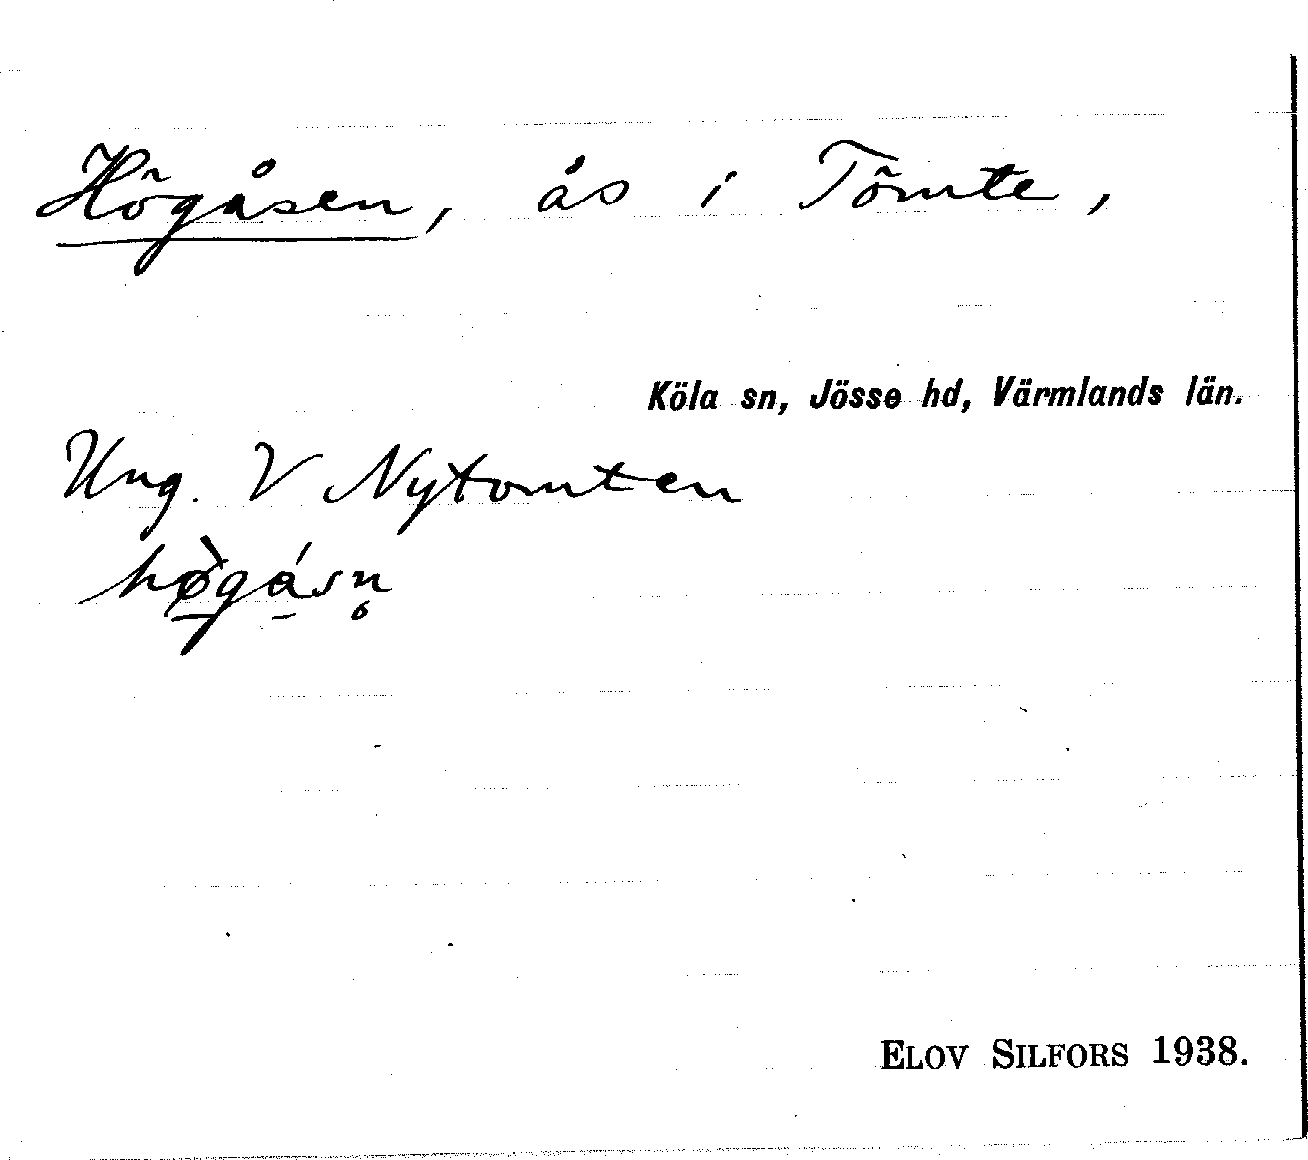 Högåsen, ås i Tömte,
Köla sn, Jösse hd, Värmlands län.
Ung. V Nytomten
hø̀gásn̥
ELOV SILFORS 1938.